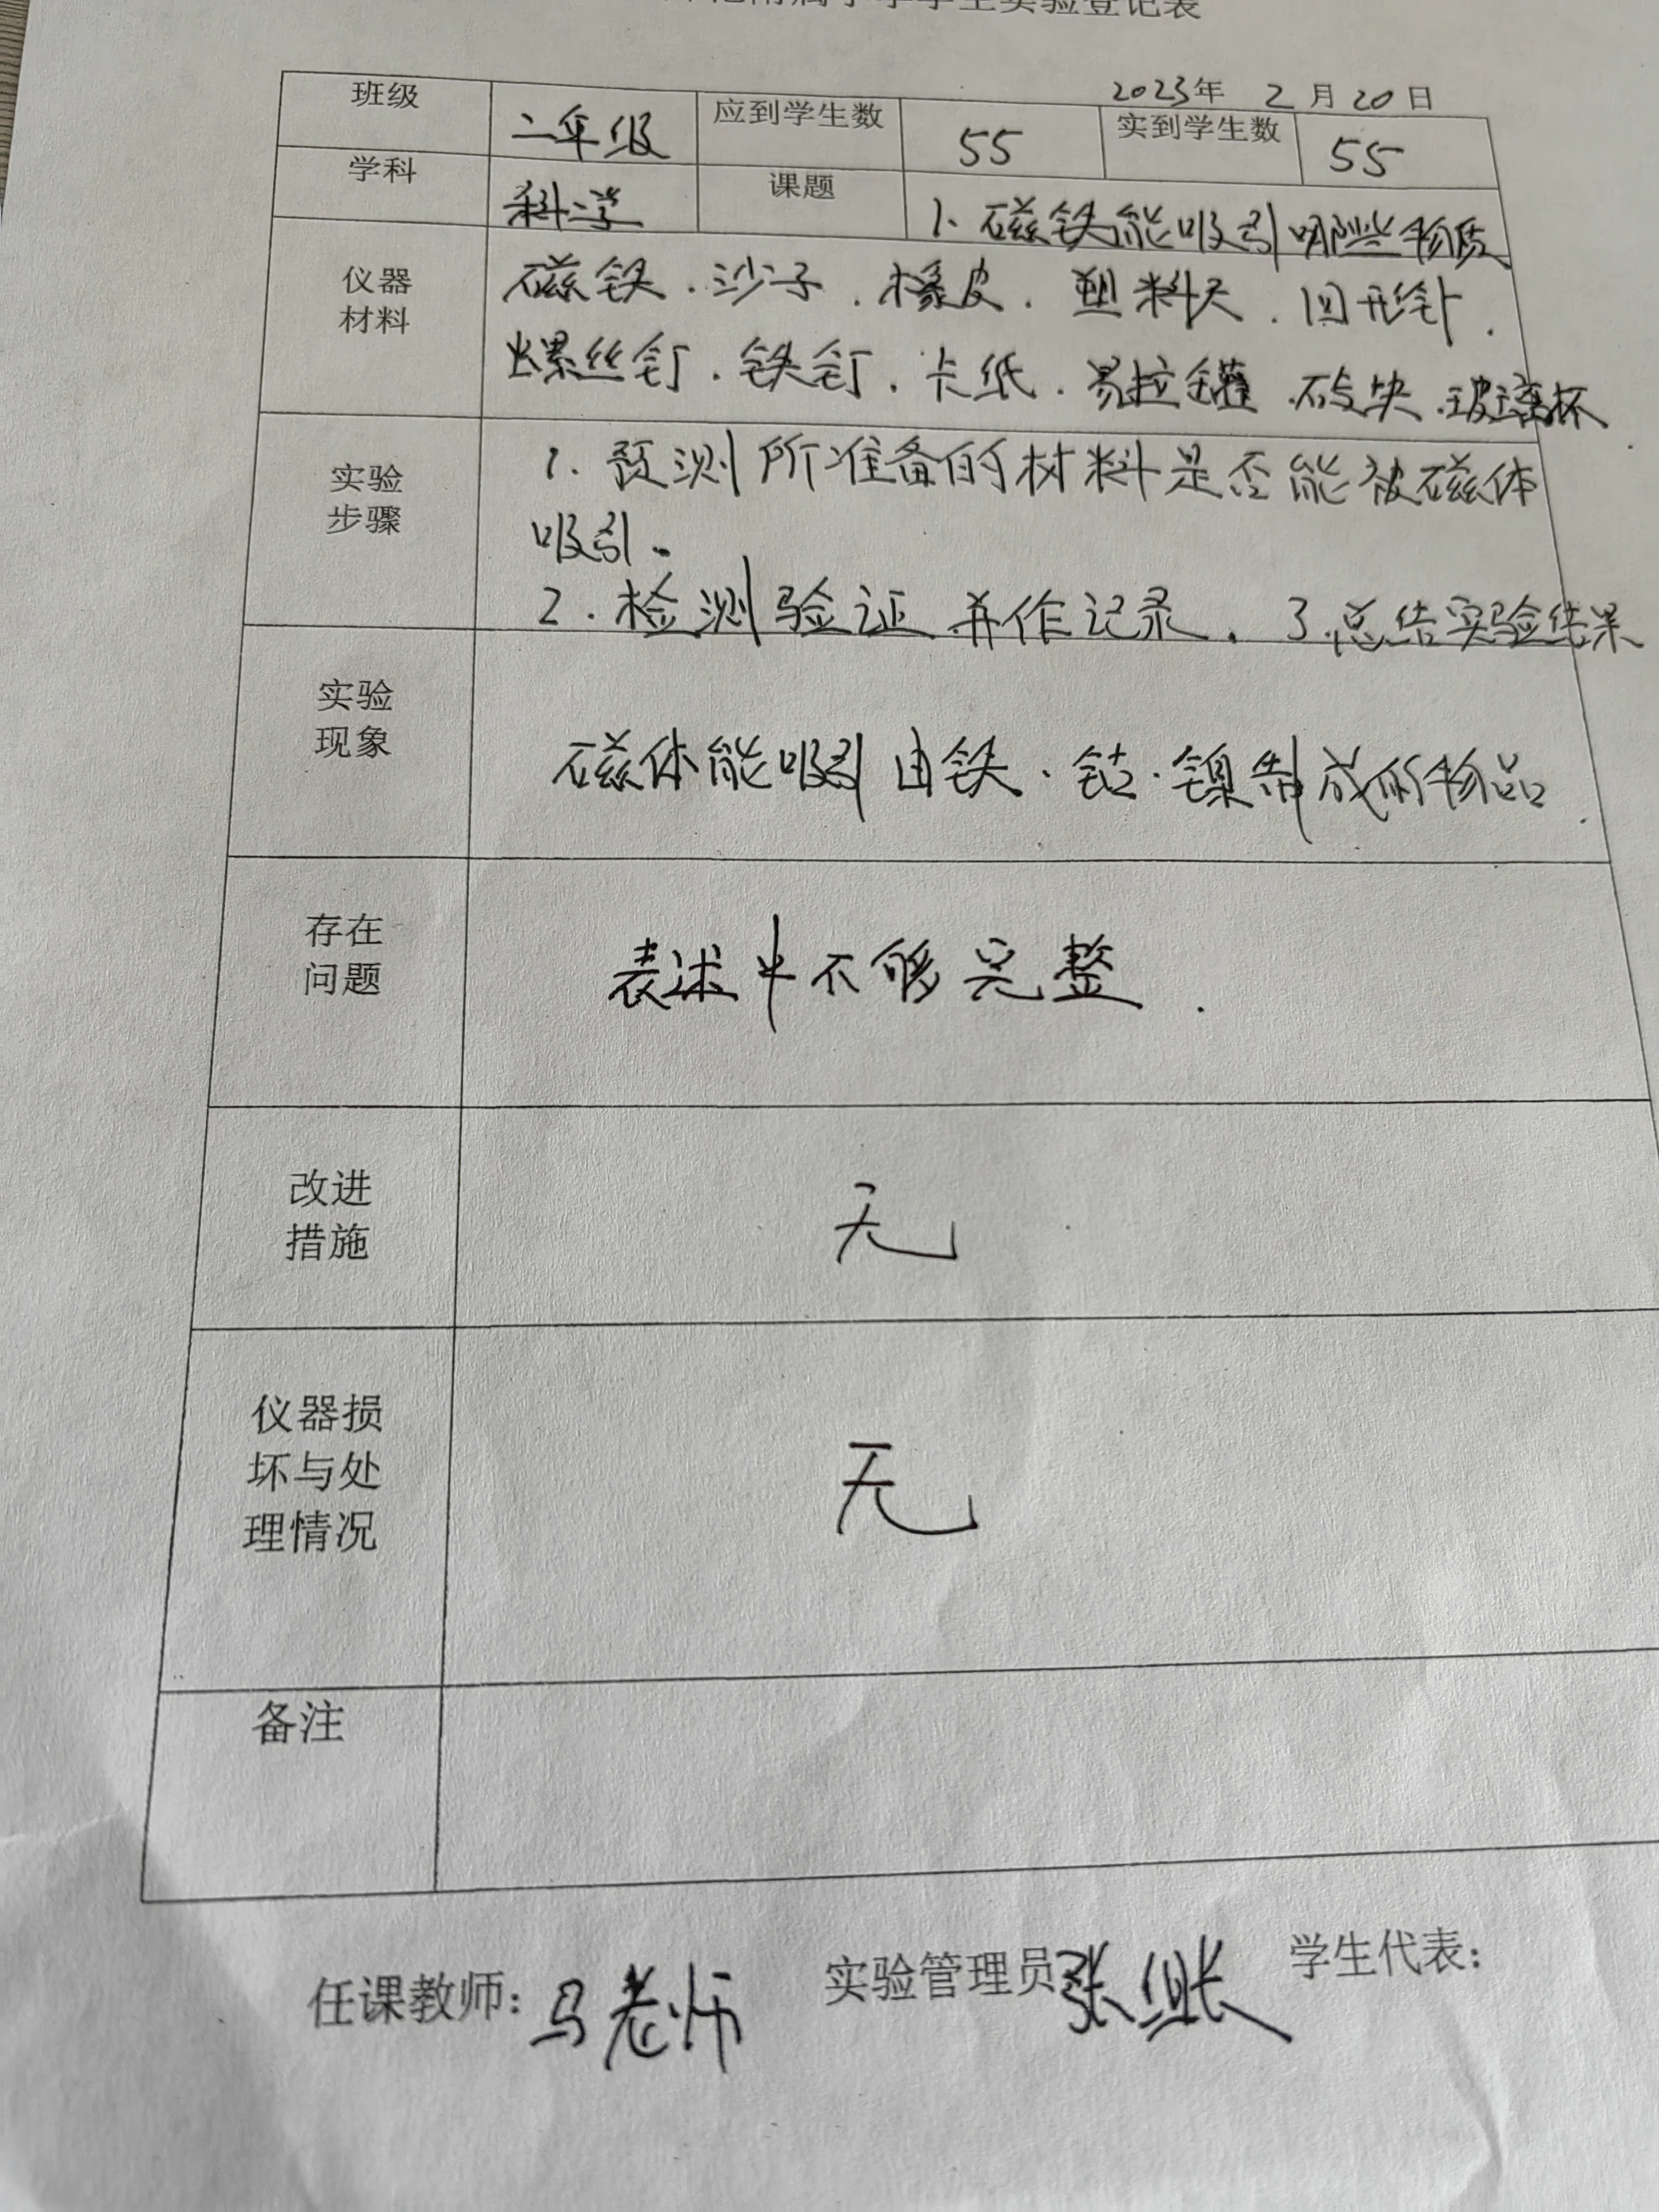 附属小学学生实验登记表
2023年 2月20日
班级 二年级 应到学生数 55 实到学生数 55
学科 科学 课题 1、磁铁能吸引哪些物质
仪器材料 磁铁、沙子、橡皮、塑料尺、回形针、
螺丝钉、铁钉、卡纸、易拉罐、砖块、玻璃杯
实验步骤 1. 预测所准备的材料是否能被磁体
吸引。
2. 检测验证并作记录。 3.总结实验结果
实验现象 磁体能吸引由铁、钴、镍制成的物品.
存在问题 表述中不够完整.
改进措施 无
仪器损坏与处理情况 无
备注
任课教师：马老师 实验管理员 张 学生代表：